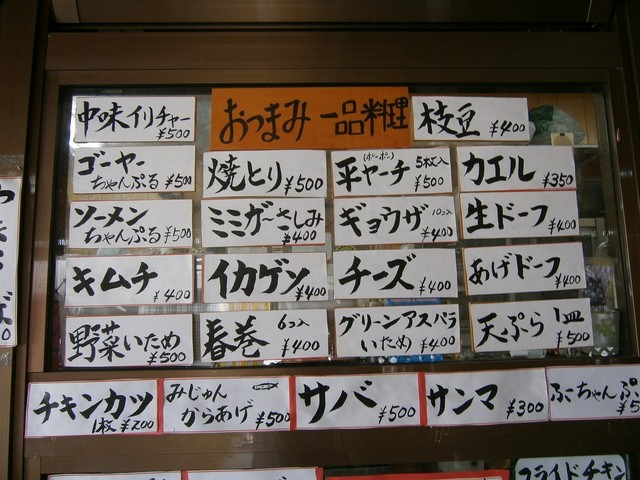 中味イリチャー
¥500
おつまみ 一品料理
枝豆 ¥400
ゴーヤー
ちゃんぷる ¥500
焼とり ¥500
(ポーポー)
平ヤーチ 5枚入
¥500
カエル ¥350
ソーメン
ちゃんぷる ¥500
ミミガーさしみ
¥400
ギョウザ 10コ入
¥400
生ドーフ ¥400
キムチ
¥400
イカゲソ
¥400
チーズ
¥400
あげドーフ
¥400
野菜いため
¥500
春巻 6コ入
¥400
グリーンアスパラ
いため ¥400
天ぷら 1皿
¥500
チキンカツ
1枚 ¥200
みじゅん
からあげ ¥500
サバ ¥500
サンマ ¥300
ふーちゃんぷ
¥5
フライドチキン